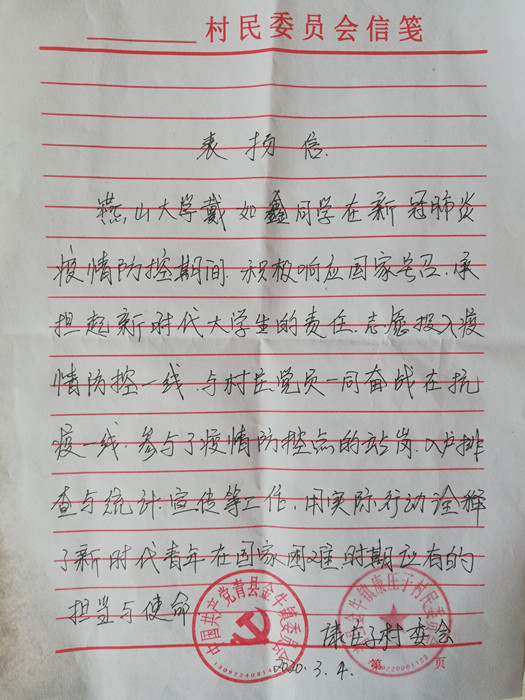 村民委员会信笺
表扬信
燕山大学戴如鑫同学在新冠肺炎
疫情防控期间.积极响应国家号召.承
担起新时代大学生的责任.志愿投入疫
情防控一线.与村庄党员一同奋战在抗
疫一线.参与了疫情防控点的站岗.入户排
查与统计.宣传等工作.用实际行动诠释
了新时代青年在国家困难时期应有的
担当与使命
中国共产党青县金牛镇委员会
金牛镇康庄子村民委员会
康庄子村委会
2020.3.4.
第 页